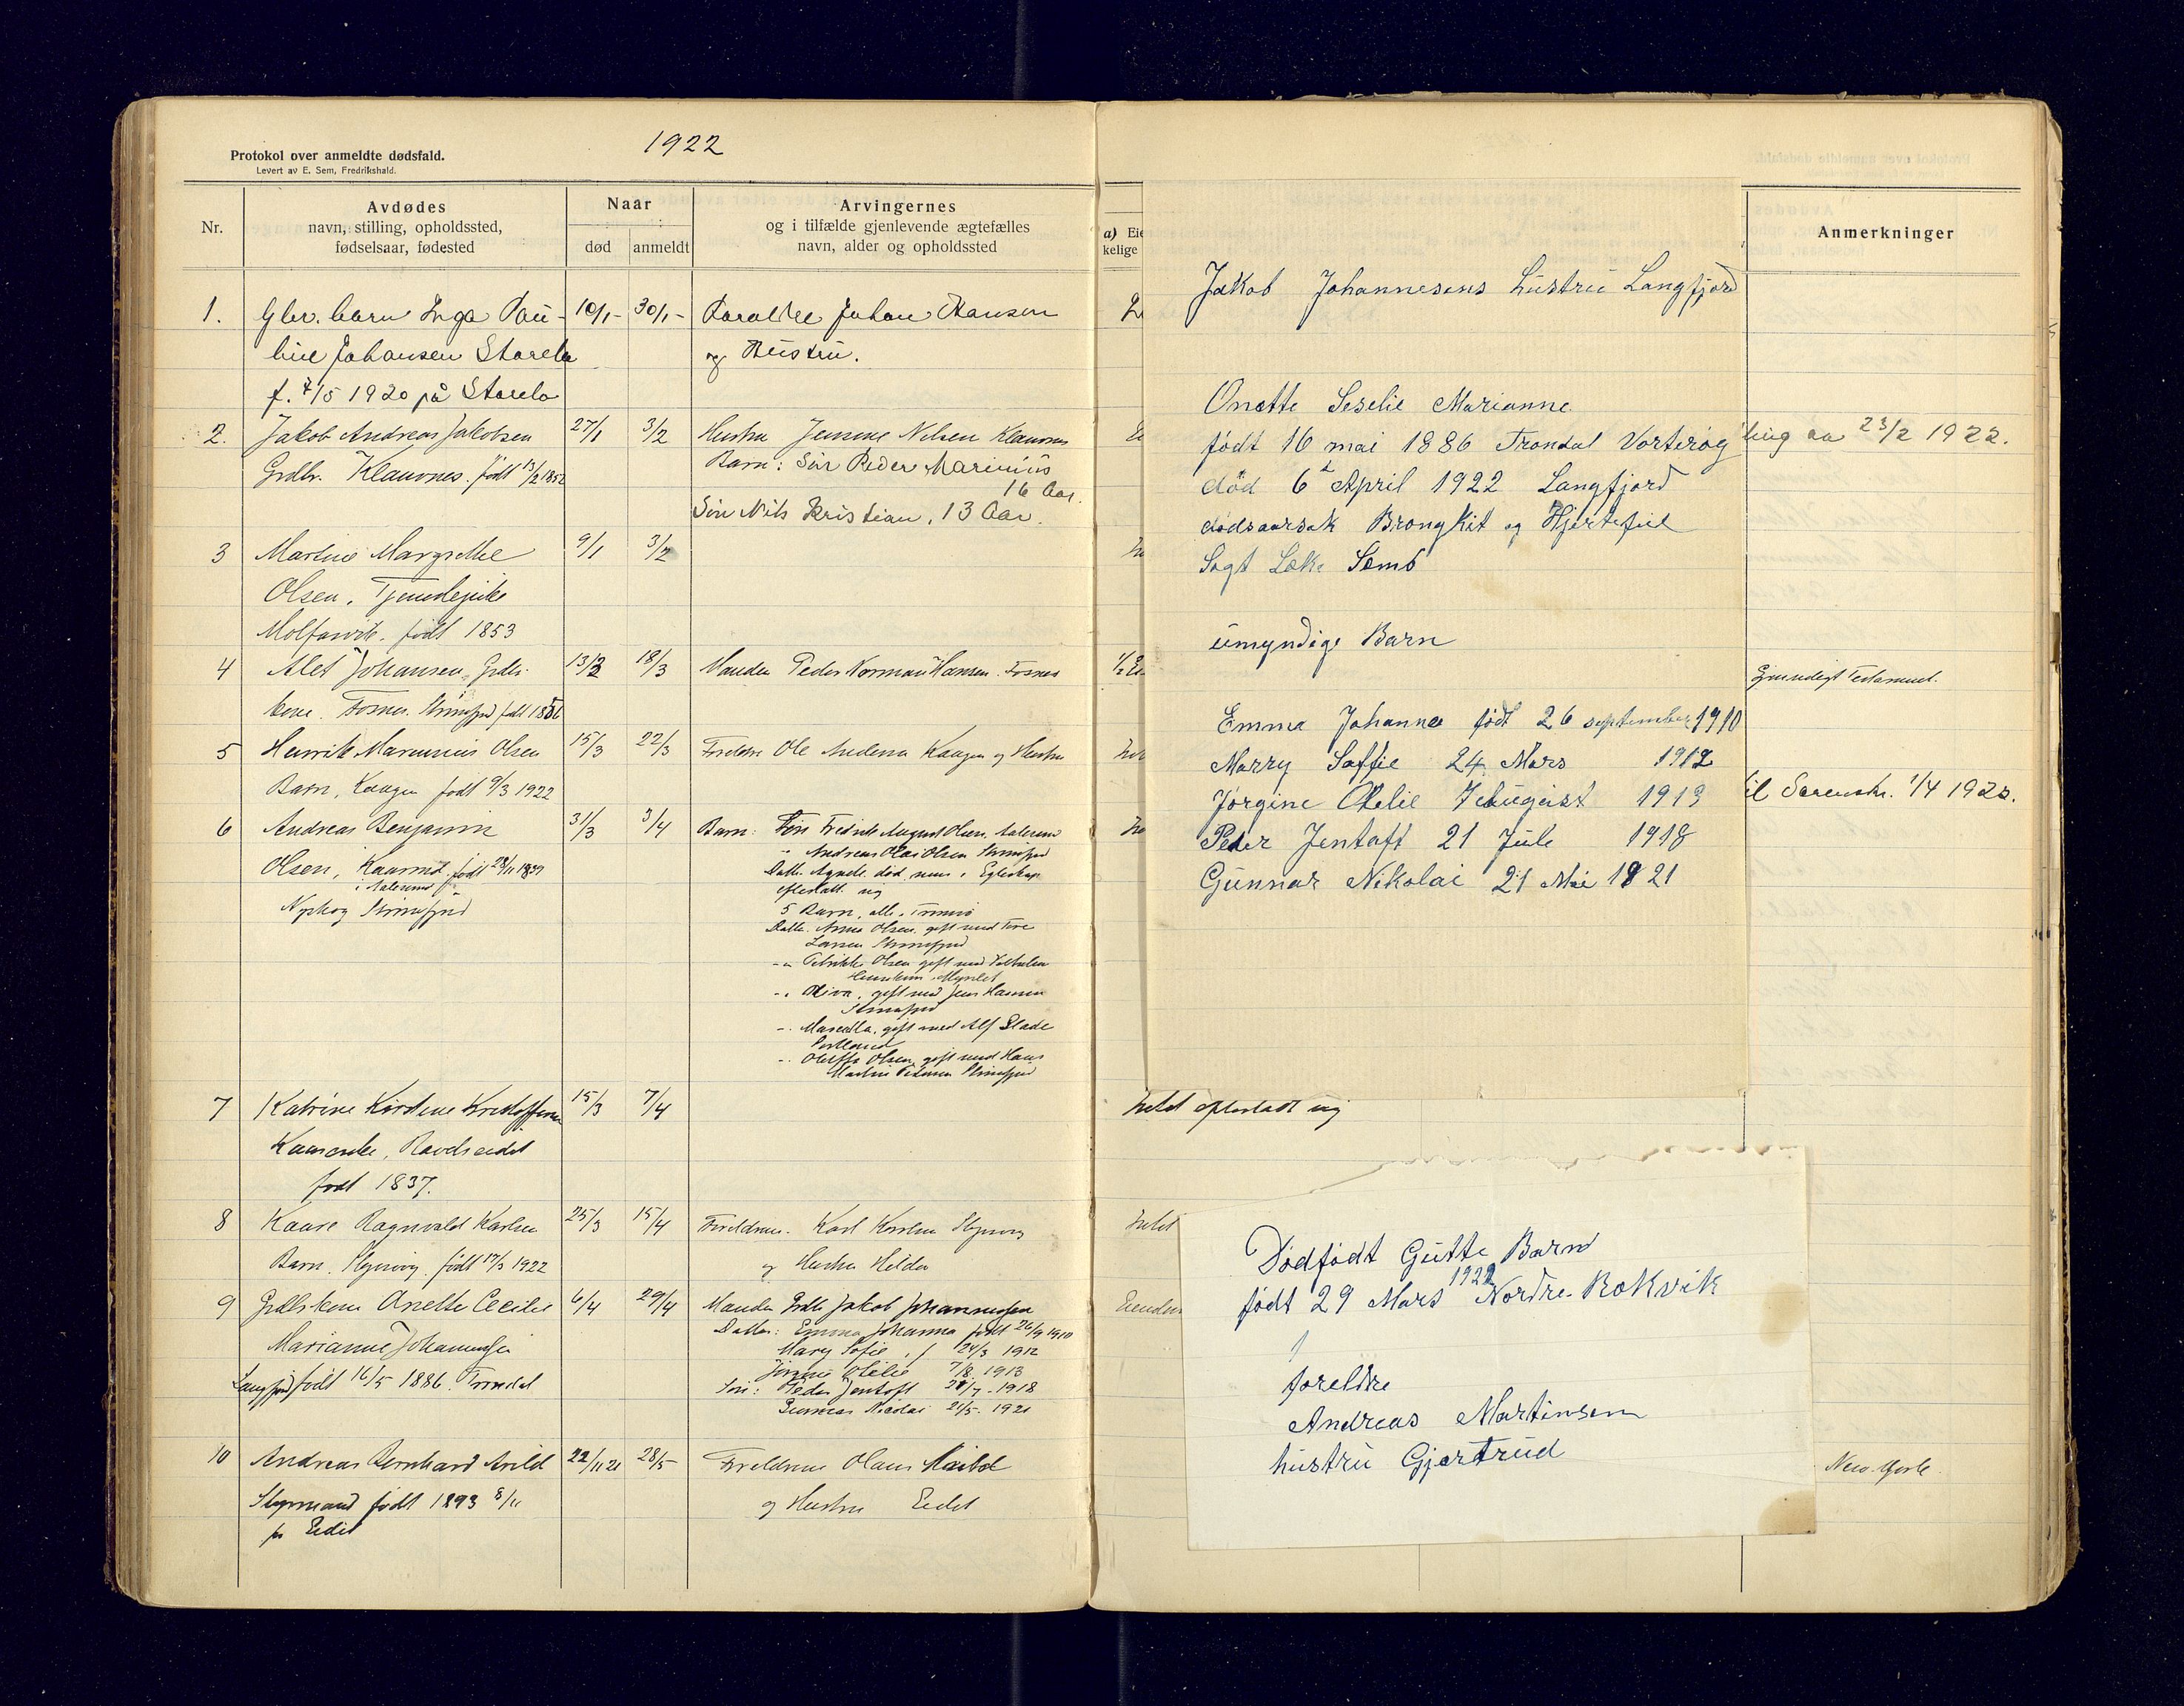 1922
Protokol over anmeldte dødsfald.
Levert av E. Sem, Fredrikshald.
Nr.
Avdødes
navn, stilling, opholdssted,
fødselsaar, fødested
Naar
død
anmeldt
Arvingernes
og i tilfælde gjenlevende ægtefælles
navn, alder og opholdssted
1. Gbr. barn Inga Pau- 10/1- 30/1- Forældre Johan Hansen
line Johansen Storelv og Hustru.
f. 7/5 1920 på Storelv
2. Jakob Andreas Jakobsen 27/1 3/2 Hustru Jensine Nilsen Klauvnes
Grdbr. Klauvnes. født 13/2 1852 Barn: Søn Peder Marinius
16 Aar.
Søn Nils Kristian, 13 Aar.
3 Martine Margrethe 9/1 3/2
Olsen, Tjenestepike
Molfarvik. født 1853
4 Alet Johansen, Grdbr. 13/2 18/3 Manden Peder Norman Hansen. Fosnes
kone. Fosnes. Strømfjord født 1856
5 Henrik Marinius Olsen 15/3 22/3 Foreldre Ole Andersen Kaagen og Hustru
Barn, Kaagen født 9/3 1922
6 Andreas Benjamin 31/3 3/4 Barn: Søn Fredrik August Olsen. Aalesund
-"- Andreas Olai Olsen Strømfjord
Olsen, Kaarmd. født 28/11 1837
i Aalesund
Datt. Agnete død, men i Egteskap
efterlatt sig
Nyskog Strømfjord
5 Barn, alle i Tromsø
Datter Anna Olsen, gift med Tore
Larsen Strømfjord
-"- Petrikke Olsen gift med
Henriksen
-"- Oliva, gift med Jens Hansen
Strømfjord
-"- Marcella, gift med Alf Slade
Portland
-"- Oluffa Olsen, gift med Hans
Martin Pedersen Strømfjord
7 Katrine Kirstine Kristoffersen 15/3 7/4
Kaarenke, Ravelseidet
født 1837.
8 Kaare Ragnvald Karlsen 25/3 15/4 Foreldrene. Karl Karlsen
Barn. født 17/3 1922 og Hustru Hilda
9 Grdbrskone Anette Cecilie 6/4 29/4 Manden Grdbr Jakob Johannessen
Datter: Emma Johanna født 26/9 1910
Marianne Johannessen Mary Sofie 24/3 1912
Jørgine Otelie 7/8. 1913
Langfjord født 16/5 1886. Trondal Søn: Peder Jentoft 21/7. 1918
Gunnar Nicolai 21/5. 1921
10 Andreas Bernhard Arild 22/11 21 28/5 Foreldrene Olaus
Styrmand født 1893 8/11 og Hustru Eidet
på Eidet
a) Eie
kelige
Anmerkninger
Jakob Johannesens hustru Langfjord
Onette Seselie Marianne
født 16 mai 1886 Trondal Vorterøg
død 6 April 1922 Langfjord
dødsaarsak Brongkit og Hjertefeil
Sogt Læke Semb
umyndige Barn
Emma Johanne født 26 september 1910
Marry Saffie 24 Mars 1912
Jørgine Otelie 7 august 1913
Peder Jentaft 21 Jule 1918
Gunnar Nikolai 21 Mai 1921
ling aa 23/2 1922.
Gjensidigt Testament.
til Sorensk. 1/4 1922.
Intet efterlatt sig
Intet
Eiendom
Dødfødt Gutte Barn
født 29 Mars 1922 Nordre-Rokvik
foreldre
Andreas Martinsen
hustru Gjertrud
New York.